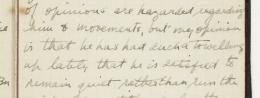 of opinions are hazarded regarding
them & movements, but my opinion
is that he has had such a towelling
up lately that he is satisfied to
remain quiet rather than run the